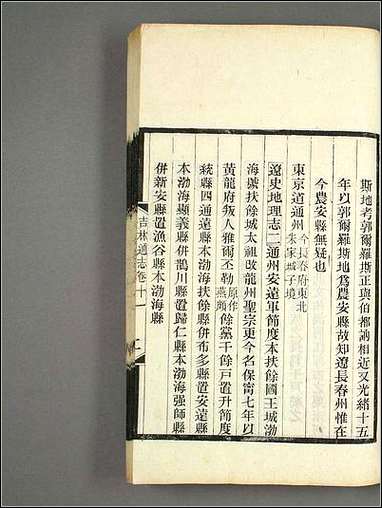 斯地考郭爾羅斯正與伯都訥相近又光緒十五
年以郭爾羅斯地爲農安縣故知遼長春州惟在
今農安縣無疑也
東京道通州今長春府東北朱家城子境
遼史地理志二通州安遠軍節度本扶餘國王城渤
海號扶餘城太祖改龍州聖宗更今名保寧七年以
黃龍府叛人雅爾丕勒原作燕頗餘黨千餘戶置升節度
統縣四通遠縣本渤海扶餘縣併布多縣置安遠縣
本渤海顯義縣併鵲川縣置歸仁縣本渤海强師縣
併新安縣置漁谷縣本渤海縣
吉林通志卷十一 二